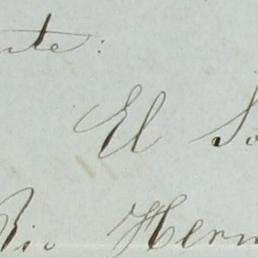 ute:
El So
Rio Hern